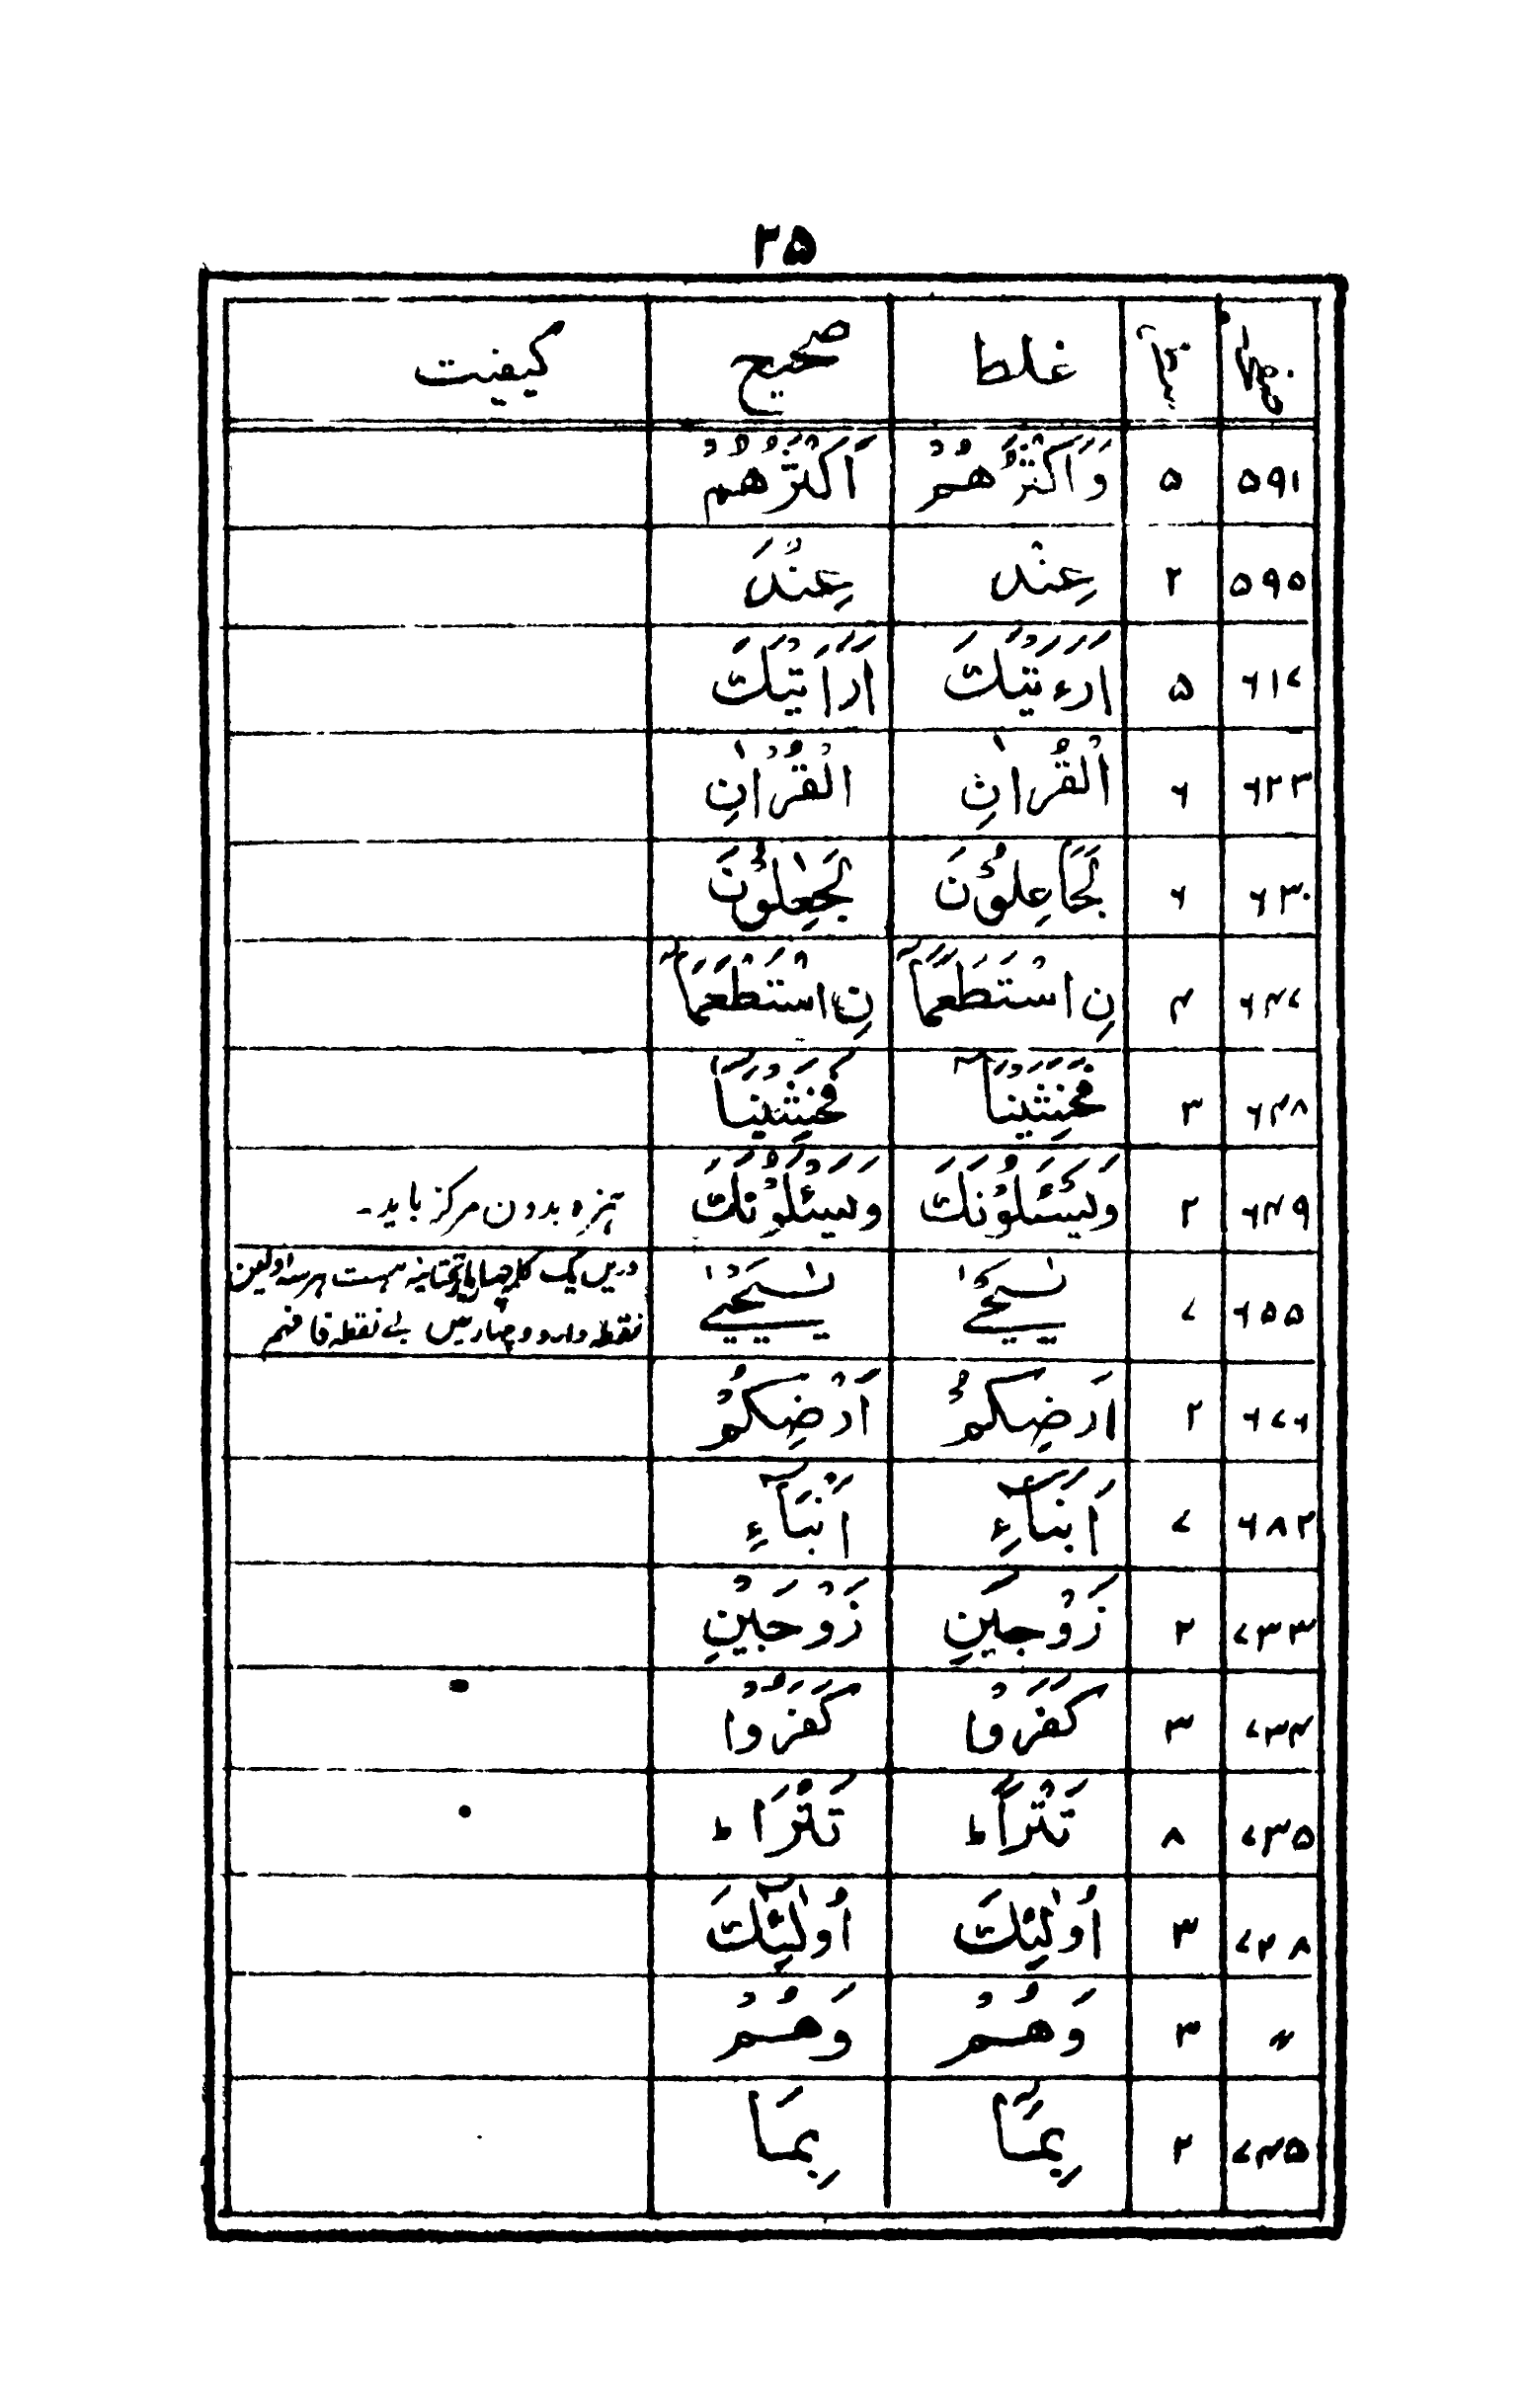 ۲۵
نمبر صفحہ نمبر سطر غلط صحیح کیفیت
۵۹۱ ۵ وَاَكْثَرُهُمْ اَكْثَرُهُمْ
۵۹۵ ۲ عِنْد عِنْدَ
۶۱۷ ۵ اَرَءَتَيْكَ اَرَاَتَيْكَ
۶۲۳ ۶ الْقُرْاٰنِ الْقُرْاٰنِ
۶۳۰ ۶ لَجَاعِلُوْنَ لَجٰعِلُوْنَ
۶۴۷ ۴ نِ اسْتَطْعَمَآ نِ اسْتَطْعَمَآ
۶۴۸ ۳ فَخَشِيْنَآ فَخَشِيْنَا
۶۴۹ ۲ وَيَسْئَلُوْنَكَ وَيَسْئَلُوْنَكَ ہمزہ بدون مرکز باید۔
۶۵۵ ۷ يٰيَحْيٰى يٰيَحْيٰى دریں یک کلمہ چہار یاء تحتانیہ ہست ہر سہ اولین
نقطہ دار و چہارمیں بے نقطہ فافہم
۶۷۶ ۲ اَرضِكُمْ اَرْضِكُمْ
۶۸۲ ۷ اَنبَآءِ اَنْبَآءِ
۷۳۳ ۲ زَوْجَينِ زَوْجَيْنِ
۷۳۴ ۳ كَفَرُوْا كَفَرُوْا
۷۳۵ ۸ تَتْرَاً ط تَتْرَا ط
۷۳۸ ۳ اُولٰئِكَ اُولٰٓئِكَ
〃 ۳ وَهُمْ وَهُمْ
۷۴۵ ۲ بِمَآ بِمَا